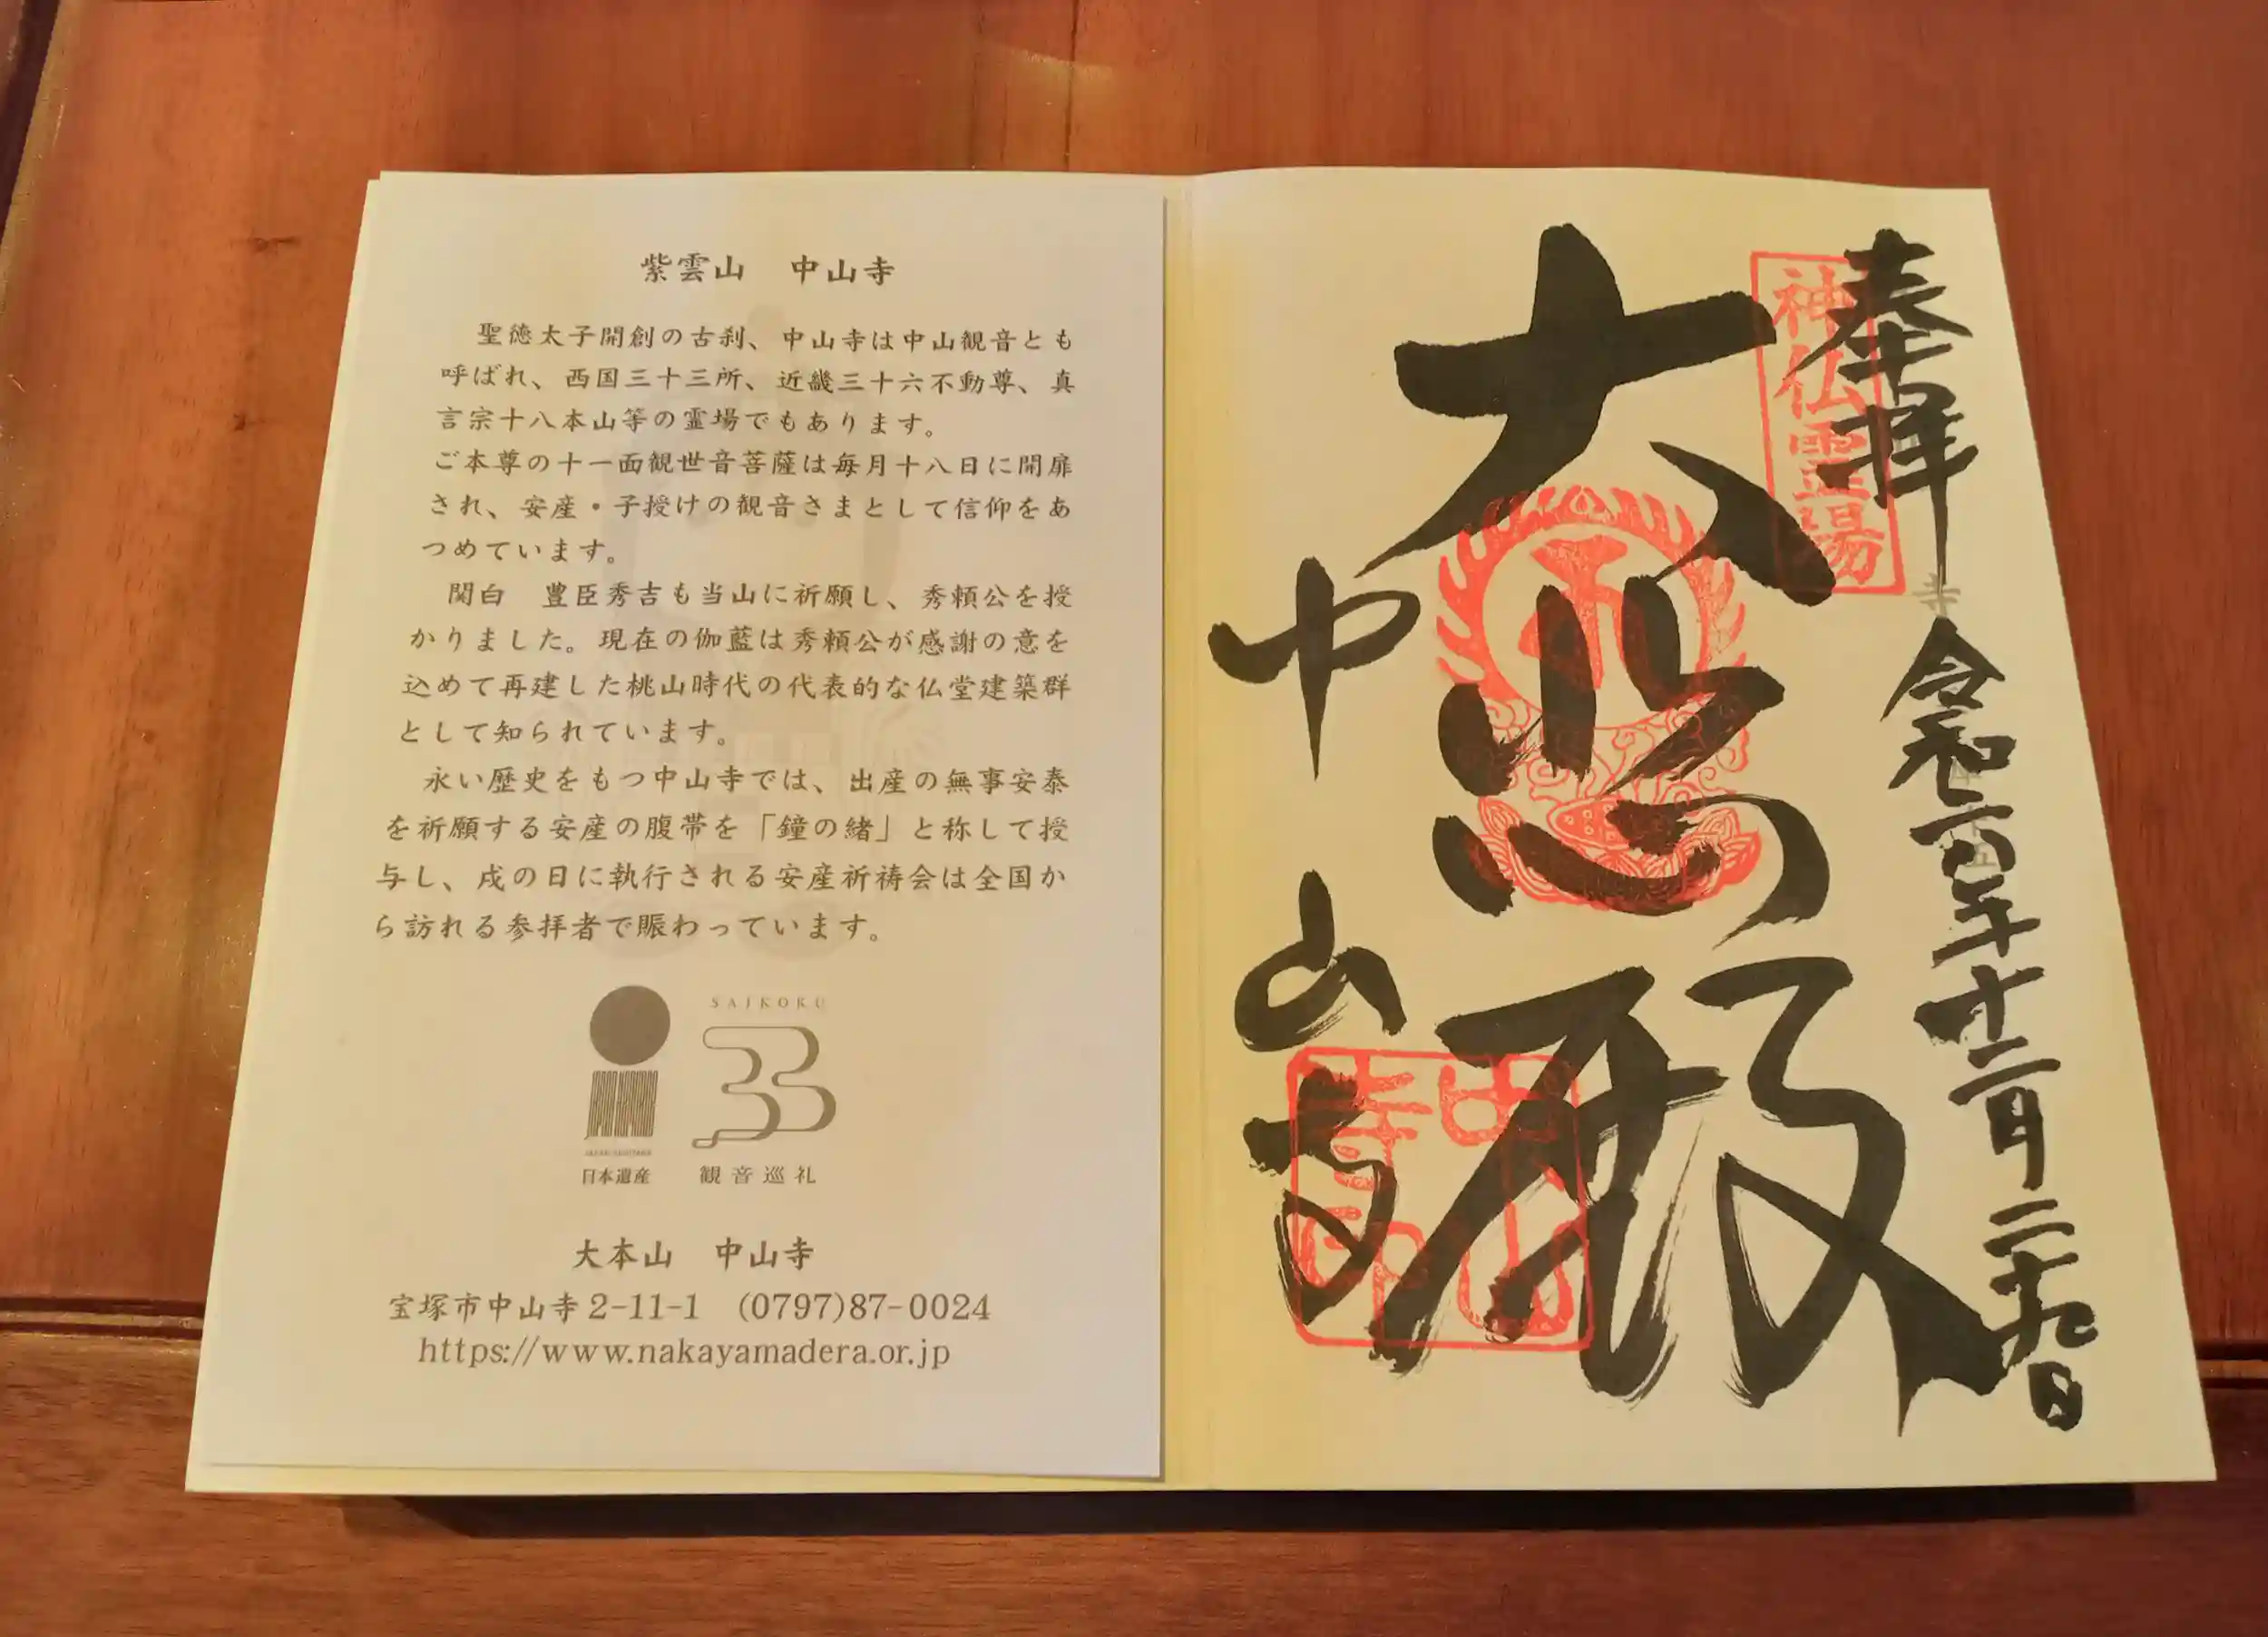 紫雲山　中山寺
聖徳太子開創の古刹、中山寺は中山観音とも
呼ばれ、西国三十三所、近畿三十六不動尊、真
言宗十八本山等の霊場でもあります。
ご本尊の十一面観世音菩薩は毎月十八日に開扉
され、安産・子授けの観音さまとして信仰をあ
つめています。
関白　豊臣秀吉も当山に祈願し、秀頼公を授
かりました。現在の伽藍は秀頼公が感謝の意を
込めて再建した桃山時代の代表的な仏堂建築群
として知られています。
永い歴史をもつ中山寺では、出産の無事安泰
を祈願する安産の腹帯を「鐘の緒」と称して授
与し、戌の日に執行される安産祈祷会は全国か
ら訪れる参拝者で賑わっています。
SAIKOKU
33
日本遺産
観音巡礼
大本山　中山寺
宝塚市中山寺2-11-1　(0797)87-0024
https://www.nakayamadera.or.jp
奉拝
令和六年十二月二十九日
神仏霊場
大悲殿
中山寺
中山寺印